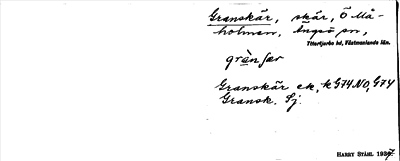 Granskär, skär, Ö Må-
holmen, Ängsö sn,
Yttertjurbo hd, Västmanlands län.
grɑ̀nʃær
Granskär ek, k G74 NO, G74
Gransk. Sj.
HARRY STÅHL 1937